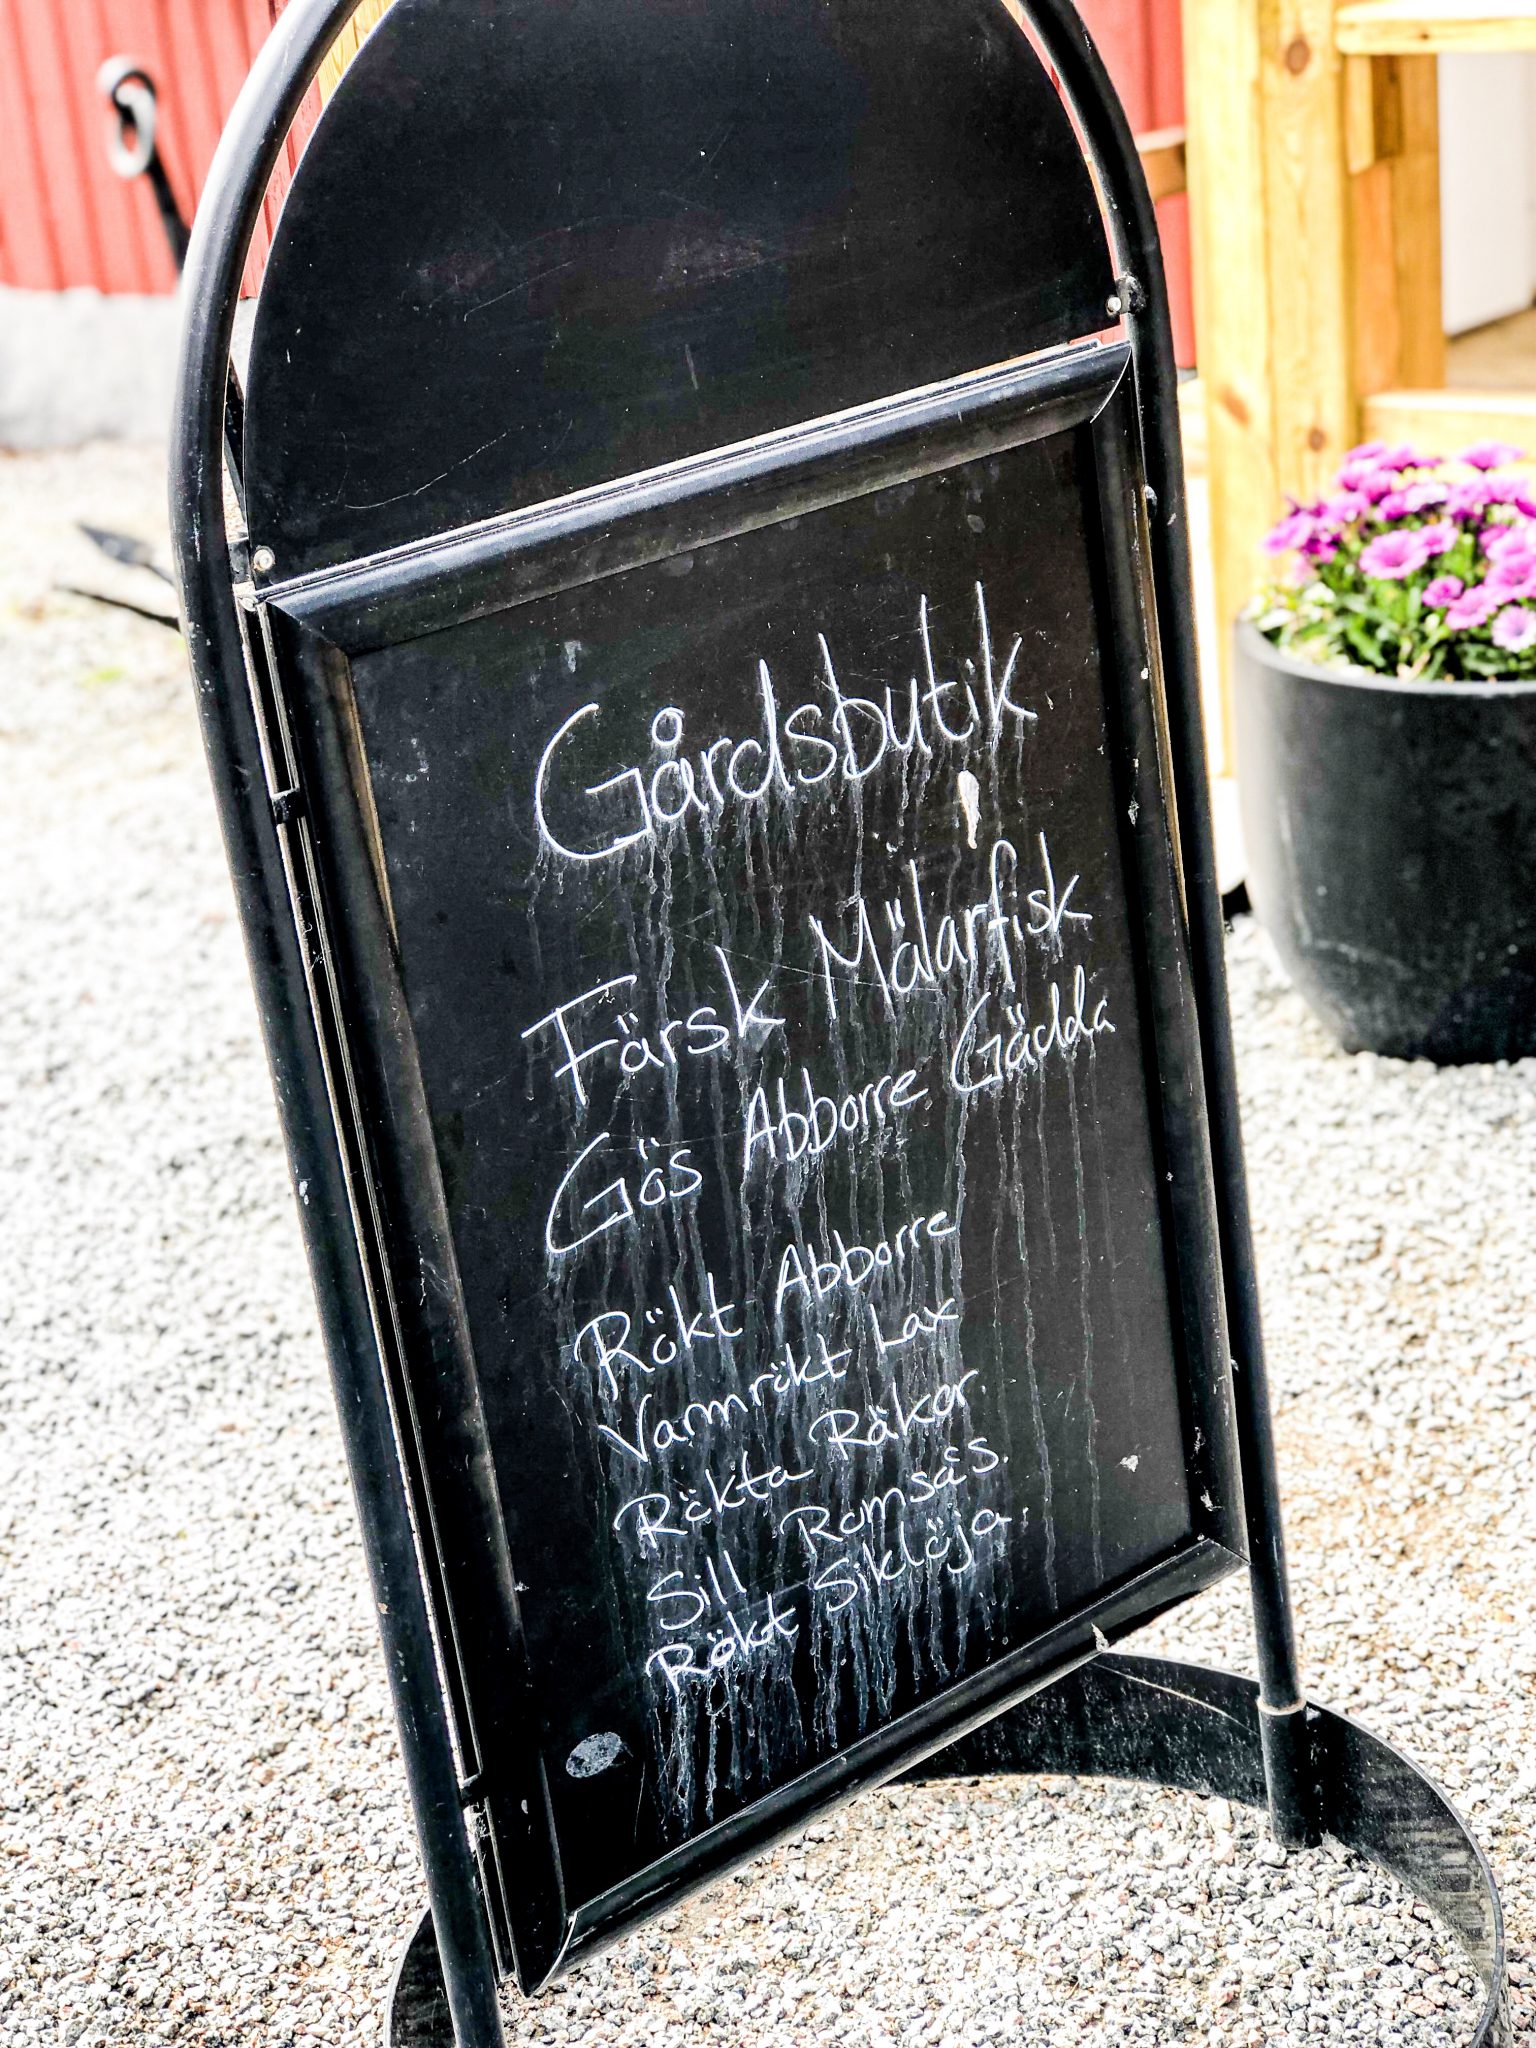 Gårdsbutik
Färsk Mälarfisk
Gös Abborre Gädda
Rökt Abborre
Varmrökt Lax
Rökta Räkor.
Sill Romsås.
Rökt Siklöja.